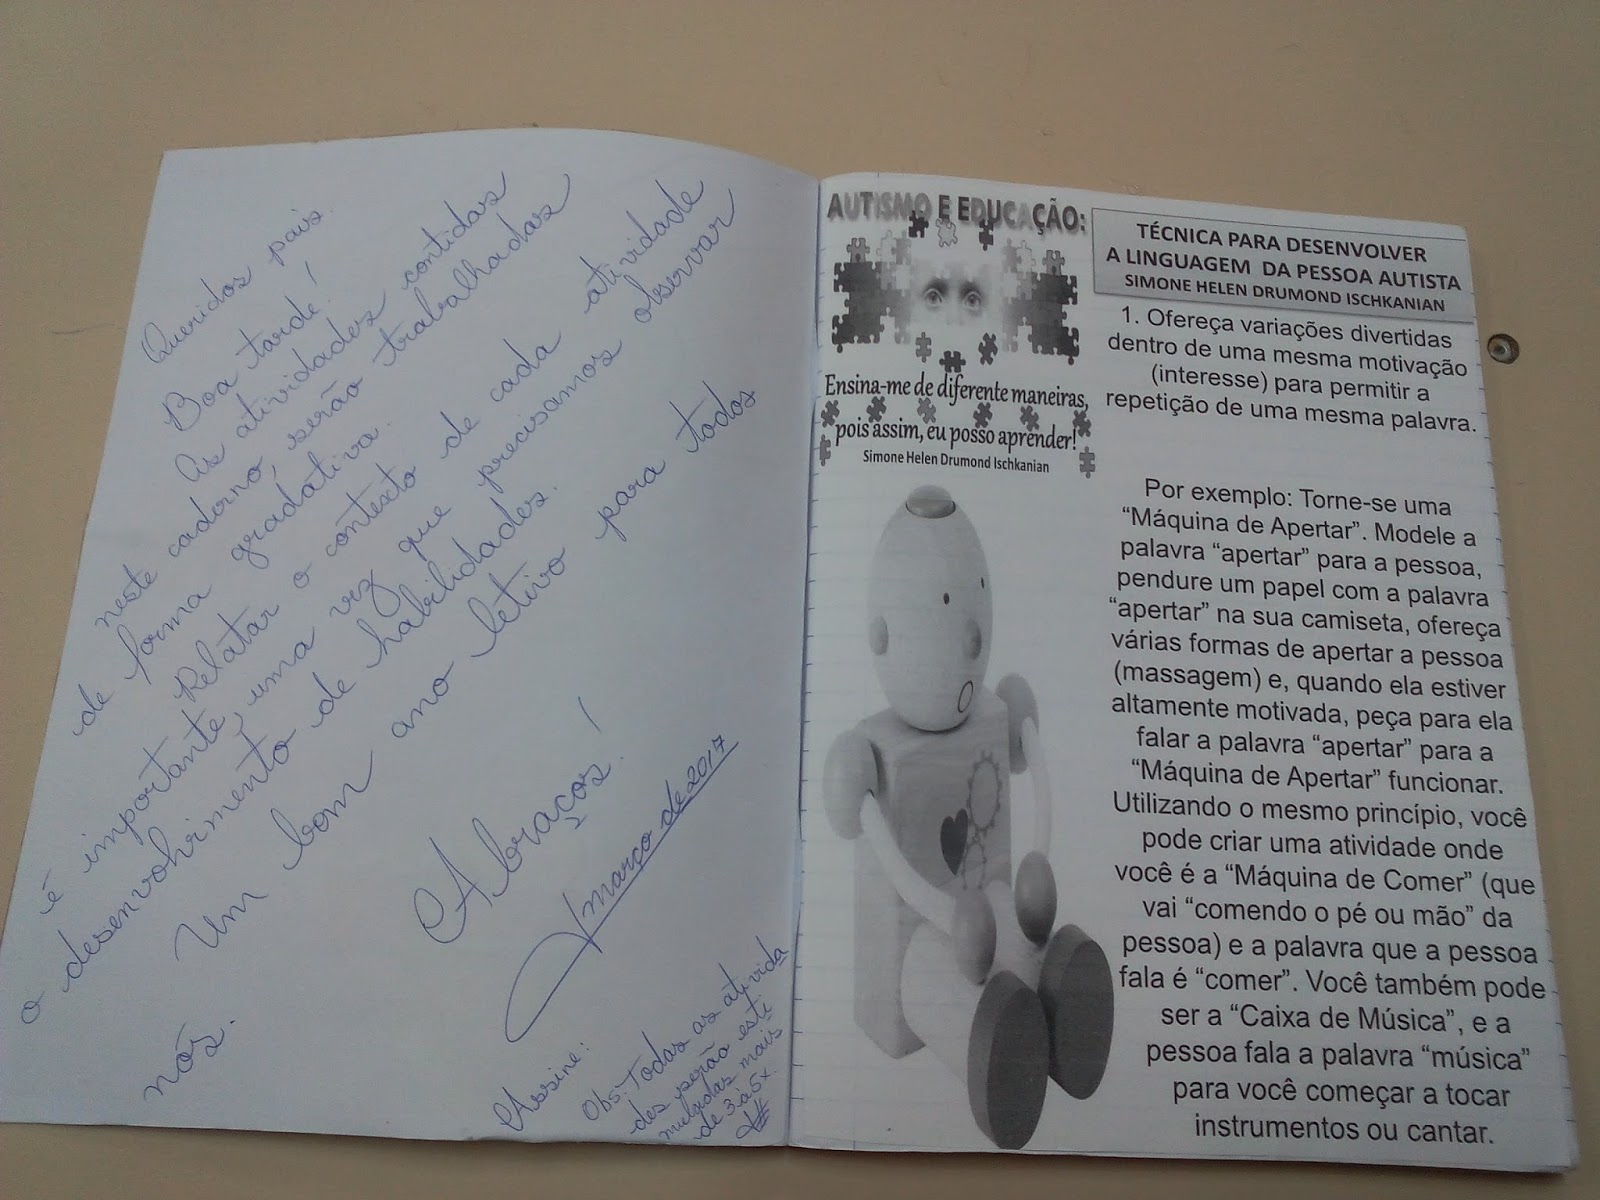 Queridos pais.
Boa tarde!
As atividades contidas
neste caderno, serão trabalhadas
de forma gradativa.
Relatar o contexto de cada atividade
é importante, uma vez que precisamos observar
o desenvolvimento de habilidades.
Um bom ano letivo para todos
nós.
Abraços!
março de 2017
Assine:
Obs: Todas as ativida
des serão esti
muladas mais
de 3 a 5x.
AUTISMO E EDUCAÇÃO:
Ensina-me de diferente maneiras,
pois assim, eu posso aprender!
Simone Helen Drumond Ischkanian
TÉCNICA PARA DESENVOLVER
A LINGUAGEM DA PESSOA AUTISTA
SIMONE HELEN DRUMOND ISCHKANIAN
1. Ofereça variações divertidas
dentro de uma mesma motivação
(interesse) para permitir a
repetição de uma mesma palavra.
Por exemplo: Torne-se uma
“Máquina de Apertar”. Modele a
palavra “apertar” para a pessoa,
pendure um papel com a palavra
“apertar” na sua camiseta, ofereça
várias formas de apertar a pessoa
(massagem) e, quando ela estiver
altamente motivada, peça para ela
falar a palavra “apertar” para a
“Máquina de Apertar” funcionar.
Utilizando o mesmo princípio, você
pode criar uma atividade onde
você é a “Máquina de Comer” (que
vai “comendo o pé ou mão” da
pessoa) e a palavra que a pessoa
fala é “comer”. Você também pode
ser a “Caixa de Música”, e a
pessoa fala a palavra “música”
para você começar a tocar
instrumentos ou cantar.